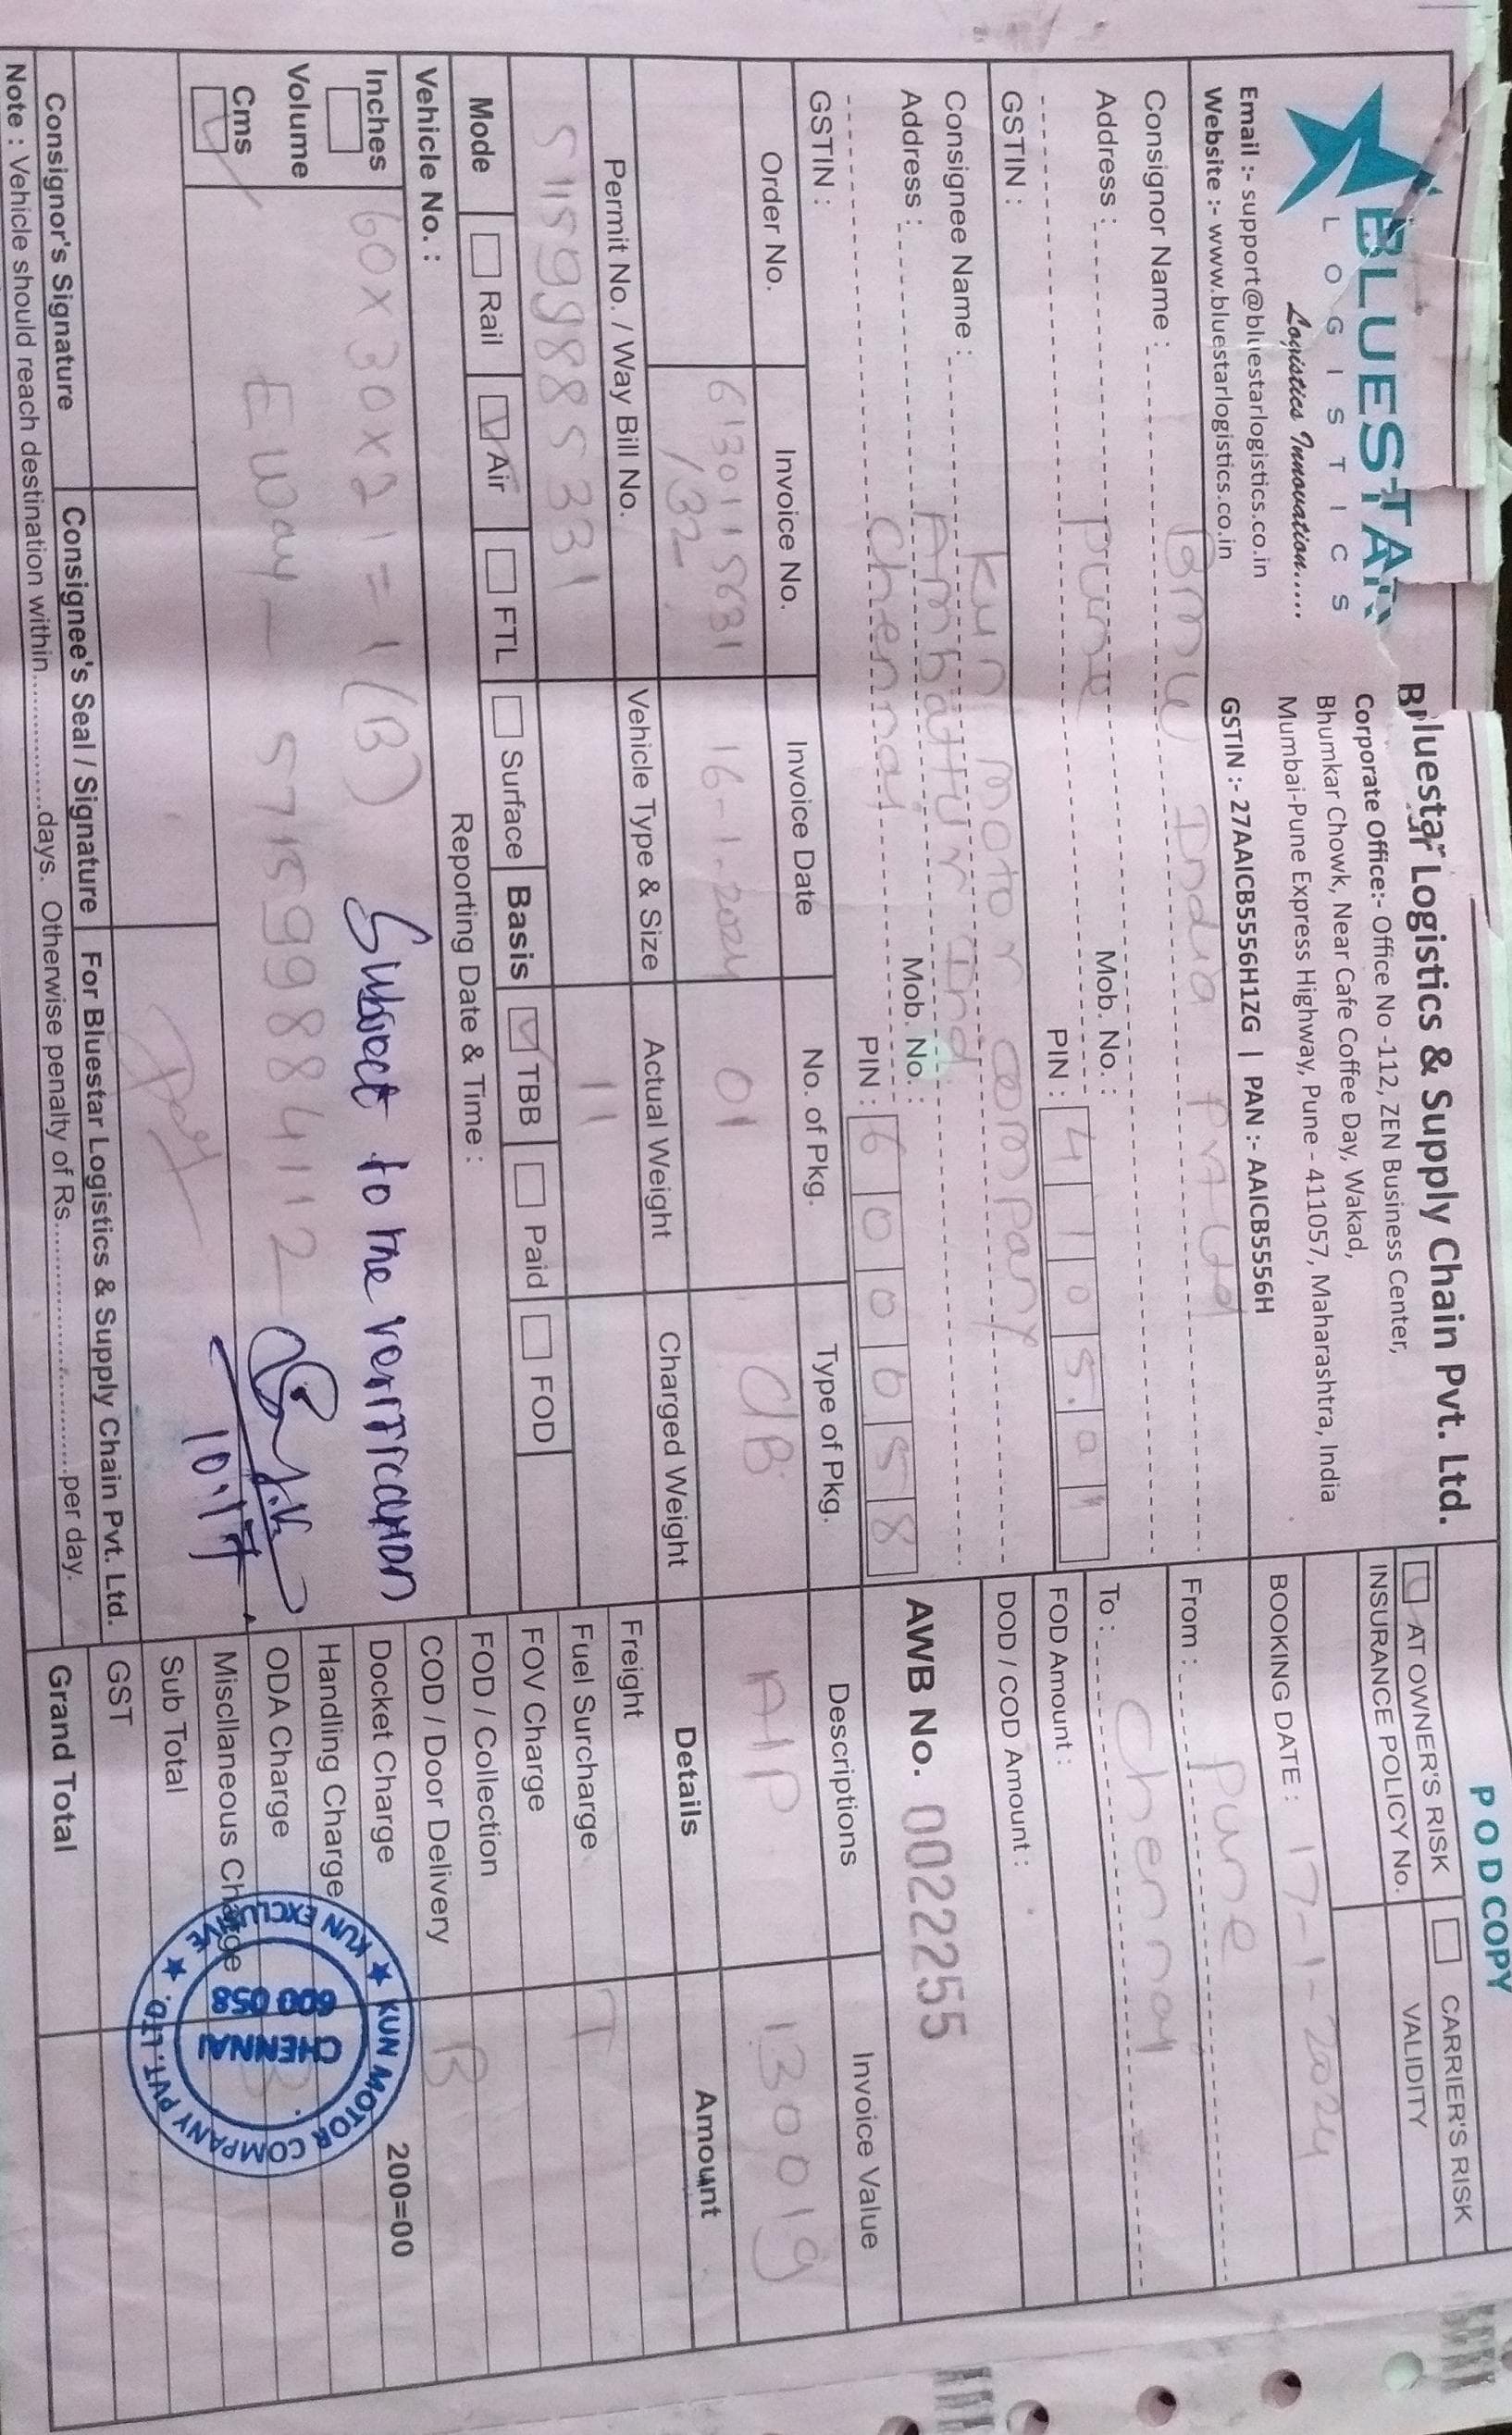 POD COPY
BLUESTAR
LOGISTICS
Logistics Innovation.....
Email :- support@bluestarlogistics.co.in
Website :- www.bluestarlogistics.co.in
Bluestar Logistics & Supply Chain Pvt. Ltd.
Corporate Office:- Office No -112, ZEN Business Center,
Bhumkar Chowk, Near Cafe Coffee Day, Wakad,
Mumbai-Pune Express Highway, Pune - 411057, Maharashtra, India
GSTIN :- 27AAICB5556H1ZG | PAN :- AAICB5556H
AT OWNER'S RISK CARRIER'S RISK
INSURANCE POLICY No. VALIDITY
BOOKING DATE : 17-1-2024
From : Pune
To : Chennai
FOD Amount :
DOD / COD Amount :
AWB No. 0022255
Consignor Name : BMW India Pvt Ltd
Address : Pune
Mob. No. :
PIN : 410501
GSTIN :
Consignee Name : Kun Motor Company
Address : Ambattur Ind.
Chennai
Mob. No. :
PIN : 600058
GSTIN :
Order No. Invoice No. Invoice Date No. of Pkg. Type of Pkg. Descriptions Invoice Value
6130115631 16-1-2024 01 CB AIP 130019
/32
Permit No. / Way Bill No. Vehicle Type & Size Actual Weight Charged Weight
511599885331 11
Mode Rail Air FTL Surface Basis TBB Paid FOD
Vehicle No. : Reporting Date & Time :
Inches
Volume
Cms
60x30x21=1(B)
Subject to the verification
Eway- 571599884112
10:17
Details Amount
Freight
Fuel Surcharge T
FOV Charge
FOD / Collection
COD / Door Delivery B
Docket Charge 200=00
Handling Charge
ODA Charge B
Miscllaneous Charge
Sub Total
GST
Grand Total
KUN MOTOR COMPANY PVT. LTD.
KUN EXCLUSIVE
CHENNAI
600 058
Consignor's Signature Consignee's Seal / Signature For Bluestar Logistics & Supply Chain Pvt. Ltd.
Note : Vehicle should reach destination within..................days. Otherwise penalty of Rs............................per day.